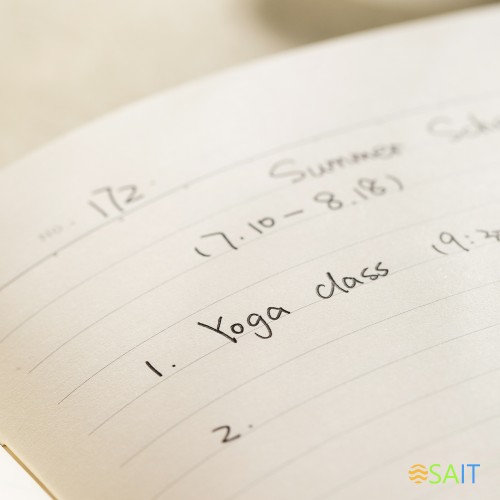 No. 172
Summer
(7.10 - 8.18)
1. Yoga class (9:3
2.
SAIT